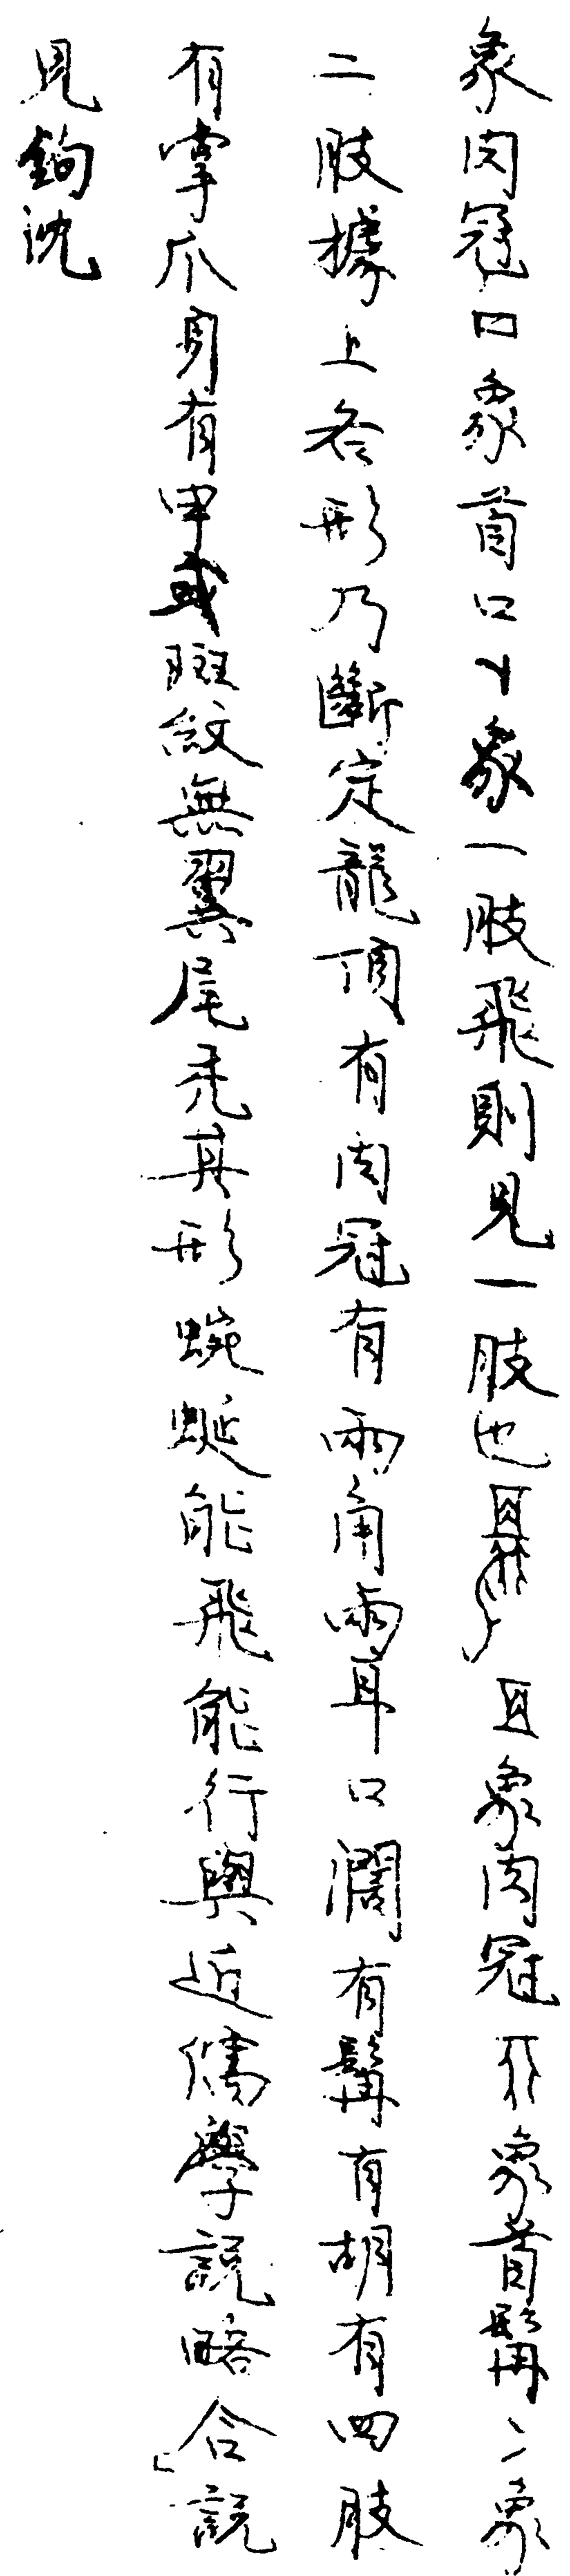 象肉冠口象首口丫象一肢飛則見一肢也且象肉冠象首髯象
二肢據上各形乃斷定龍頂有肉冠有兩角兩耳口濶有髯有胡有四肢
有掌爪身有甲或斑紋無翼尾禿其形蜿蜒能飛能行與近儒學説略合説
見鉤沈